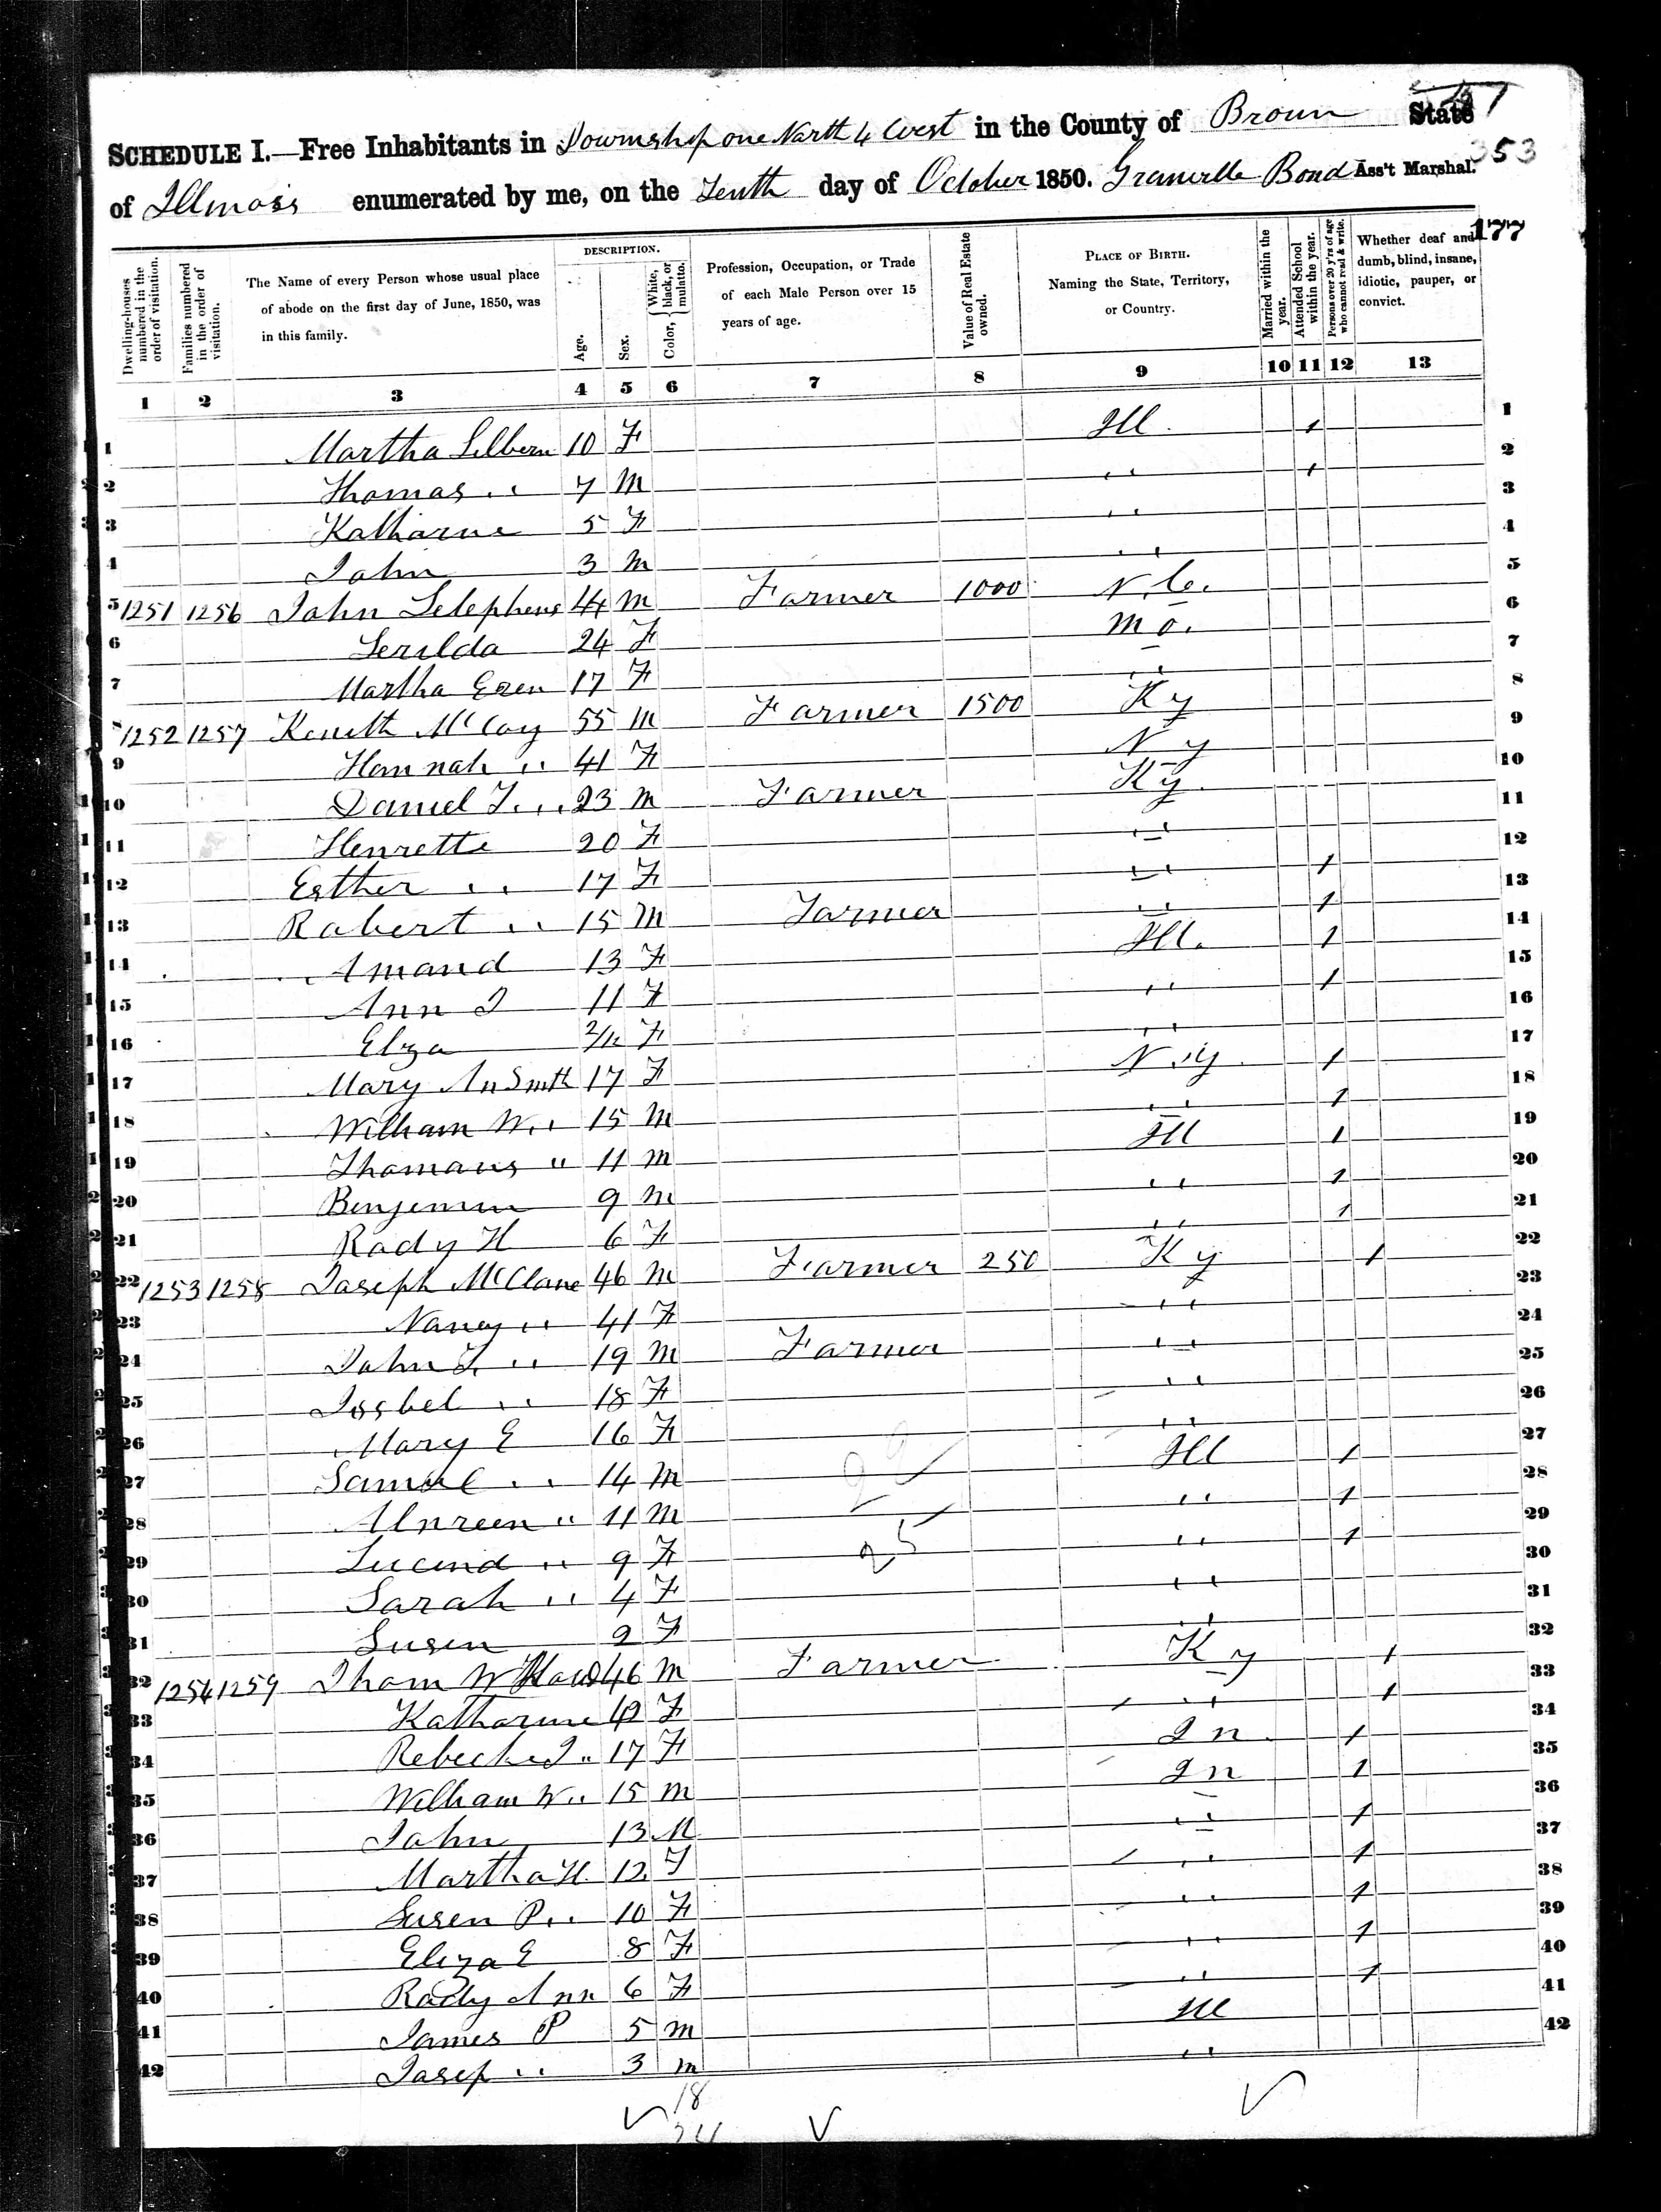 SCHEDULE I.—Free Inhabitants in Township one North 4 West in the County of Broun State
353
of Illinois enumerated by me, on the Tenth day of October 1850. Granville Bond Ass't Marshal.
177
Dwelling-houses numbered in the order of visitation.
Families numbered in the order of visitation.
The Name of every Person whose usual place of abode on the first day of June, 1850, was in this family.
DESCRIPTION.
Age.
Sex.
Color, { White, black, or mulatto.
Profession, Occupation, or Trade of each Male Person over 15 years of age.
Value of Real Estate owned.
PLACE OF BIRTH.
Naming the State, Territory, or Country.
Married within the year.
Attended School within the year.
Persons over 20 y'rs of age who cannot read & write.
Whether deaf and dumb, blind, insane, idiotic, pauper, or convict.
1 2 3 4 5 6 7 8 9 10 11 12 13
1 Martha 10 F Ill. 1 1
2 Thomas " 7 M " 1 2
3 Katharne 5 F " 3
4 John 3 M " 4
5 1251 1256 John 44 M Farmer 1000 N.C. 5
6 Serilda 24 F Mo. 6
7 Martha 17 F " 7
8 1252 1257 Keneth McCoy 55 M Farmer 1500 Ky 8
9 Hannah " 41 F N y 9
10 Daniel " 23 M Farmer Ky. 10
11 Henrette 20 F " 11
12 Esther " 17 F " 1 12
13 Robert " 15 M Farmer " 1 13
14 Amand 13 F Ill. 1 14
15 Ann J 11 F " 1 15
16 Elza 2/12 F " 16
17 Mary An Smth 17 F N.y. 1 17
18 William W. " 15 M " 1 18
19 Thomaus " 11 M Ill 1 19
20 Benjemin 9 M " 1 20
21 Rady H 6 F " 1 21
22 1253 1258 Joseph McClane 46 M Farmer 250 Ky 1 22
23 Nancy " 41 F " 23
24 John " 19 M Farmer " 24
25 Issbel " 18 F " 25
26 Mary E 16 F " 26
27 Samuel " 14 M Ill 1 27
28 " 11 M " 1 28
29 Lucind " 9 F " 1 29
30 Sarah " 4 F " 30
31 Susen 2 F " 31
32 1254 1259 Thom W 46 M Farmer Ky 1 32
33 Katharine F " 1 33
34 Rebecka J " 17 F In. 1 34
35 William W " 15 M In 1 35
36 John 13 M " 1 36
37 Martha H. 12 F " 1 37
38 Susen P. " 10 F " 1 38
39 Eliza E 8 F " 1 39
40 Rady Ann 6 F " 1 40
41 James P 5 M Ill 41
42 Josep " 3 M " 42
18